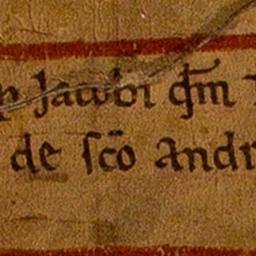 p Jacobi qm̄
de sc̄o Andr